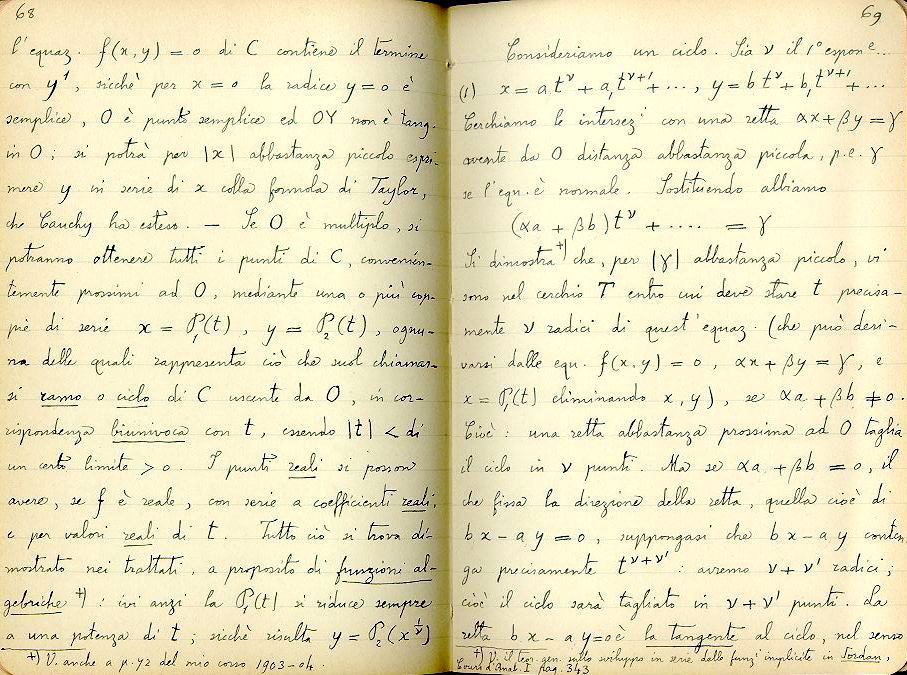 68
l'equaz. f(x,y) = 0 di C contiene il termine
con y¹, sicchè per x = 0 la radice y = 0 è
semplice, O è punto semplice ed OY non è tang.
in O; si potrà per |x| abbastanza piccolo espri-
mere y in serie di x colla formola di Taylor,
che Cauchy ha esteso. — Se O è multiplo, si
potranno ottenere tutti i punti di C, convenien-
temente prossimi ad O, mediante una o più cop-
pie di serie x = P₁(t), y = P₂(t), ognu-
na delle quali rappresenta ciò che suol chiamar-
si ramo o ciclo di C uscente da O, in cor-
rispondenza biunivoca con t, essendo |t| < di
un certo limite > 0. I punti reali si posson
avere, se f è reale, con serie a coefficienti reali,
e per valori reali di t. Tutto ciò si trova di-
mostrato nei trattati, a proposito di funzioni al-
gebriche +) : ivi anzi la P₁(t) si riduce sempre
a una potenza di t; sicchè risulta y = P₂(x^{1/ν})
+) V. anche a p. 72 del mio corso 1903-04.
69
Consideriamo un ciclo. Sia ν il 1° espon^e...
(1) x = a t^ν + a₁ t^{ν+1} + ..., y = b t^ν + b₁ t^{ν+1} + ...
Cerchiamo le intersez^i con una retta αx + βy = γ
avente da O distanza abbastanza piccola, p.e. γ
se l'equ. è normale. Sostituendo abbiamo
(αa + βb) t^ν + .... = γ
Si dimostra +) che, per |γ| abbastanza piccolo, vi
sono nel cerchio T entro cui deve stare t precisa-
mente ν radici di quest'equaz. (che può deri-
varsi dalle equ. f(x,y) = 0, αx + βy = γ, e
x = P₁(t) eliminando x, y), se αa + βb ≠ 0.
Cioè: una retta abbastanza prossima ad O taglia
il ciclo in ν punti. Ma se αa + βb = 0, il
che fissa la direzione della retta, quella cioè di
bx - ay = 0, suppongasi che bx - ay conten
ga precisamente t^{ν+ν'} : avremo ν + ν' radici;
cioè il ciclo sarà tagliato in ν + ν' punti. La
retta bx - ay = 0 è la tangente al ciclo, nel senso
+) V. il teor. gen. sullo sviluppo in serie delle funz^i implicite in Jordan,
Cours d'Anal. I pag. 343